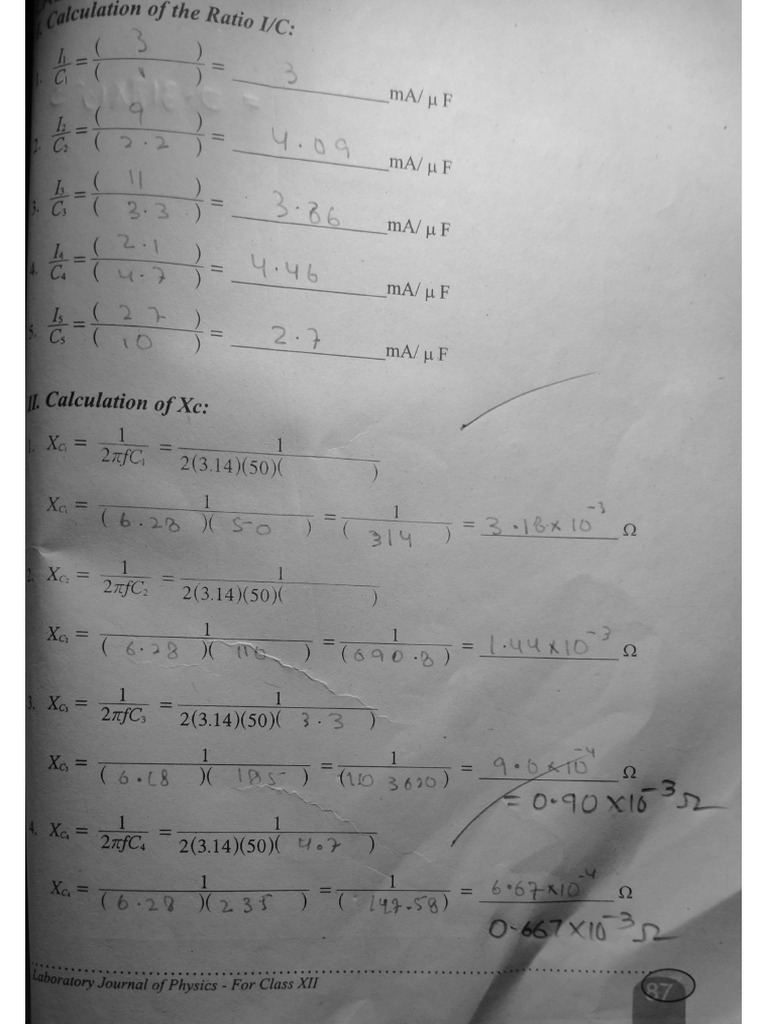 I. Calculation of the Ratio I/C:
1. I₁/C₁ = ( 3 )/( 1 ) = 3 mA/ μ F
2. I₂/C₂ = ( 9 )/( 2.2 ) = 4.09 mA/ μ F
3. I₃/C₃ = ( 11 )/( 3.3 ) = 3.86 mA/ μ F
4. I₄/C₄ = ( 2.1 )/( 4.7 ) = 4.46 mA/ μ F
5. I₅/C₅ = ( 27 )/( 10 ) = 2.7 mA/ μ F
II. Calculation of Xc:
1. X_C₁ = 1/2πfC₁ = 1/2(3.14)(50)( )
X_C₁ = 1/( 6.28 )( 50 ) = 1/( 314 ) = 3.18×10⁻³ Ω
2. X_C₂ = 1/2πfC₂ = 1/2(3.14)(50)( )
X_C₂ = 1/( 6.28 )( 110 ) = 1/( 690.8 ) = 1.44×10⁻³ Ω
3. X_C₃ = 1/2πfC₃ = 1/2(3.14)(50)( 3.3 )
X_C₃ = 1/( 6.28 )( ) = 1/( ) = 9.0×10⁻⁴ Ω
= 0.90×10⁻³Ω
4. X_C₄ = 1/2πfC₄ = 1/2(3.14)(50)( 4.7 )
X_C₄ = 1/( 6.28 )( 235 ) = 1/( ) = 6.67×10⁻⁴ Ω
0.667×10⁻³Ω
Laboratory Journal of Physics - For Class XII
87